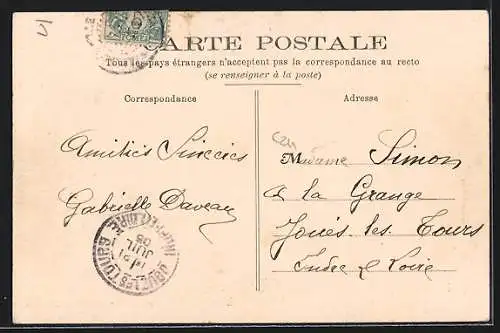 CARTE POSTALE
Tous les pays étrangers n'acceptent pas la correspondance au recto
(se renseigner à la poste)
Correspondance
Adresse
Amitiés Sincères
Gabrielle Daveau
Madame Simon
a la Grange
Joués les Tours
Indre et Loire
JOUÉ-LES-TOURS
INDRE-ET-LOIRE
JUIL
05